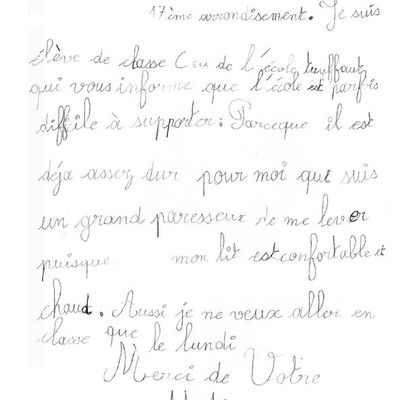 17ème arrondisement. Je suis
élève de classe Cem de l'école truffaut
qui vous informe que l'école est parfois
difficile à supporter : Parceque il est
déjà assez dur pour moi qui suis
un grand paresseux de me lever
puisque mon lit est confortable et
chaud. Aussi je ne veux aller en
classe que le lundi
Merci de Votre